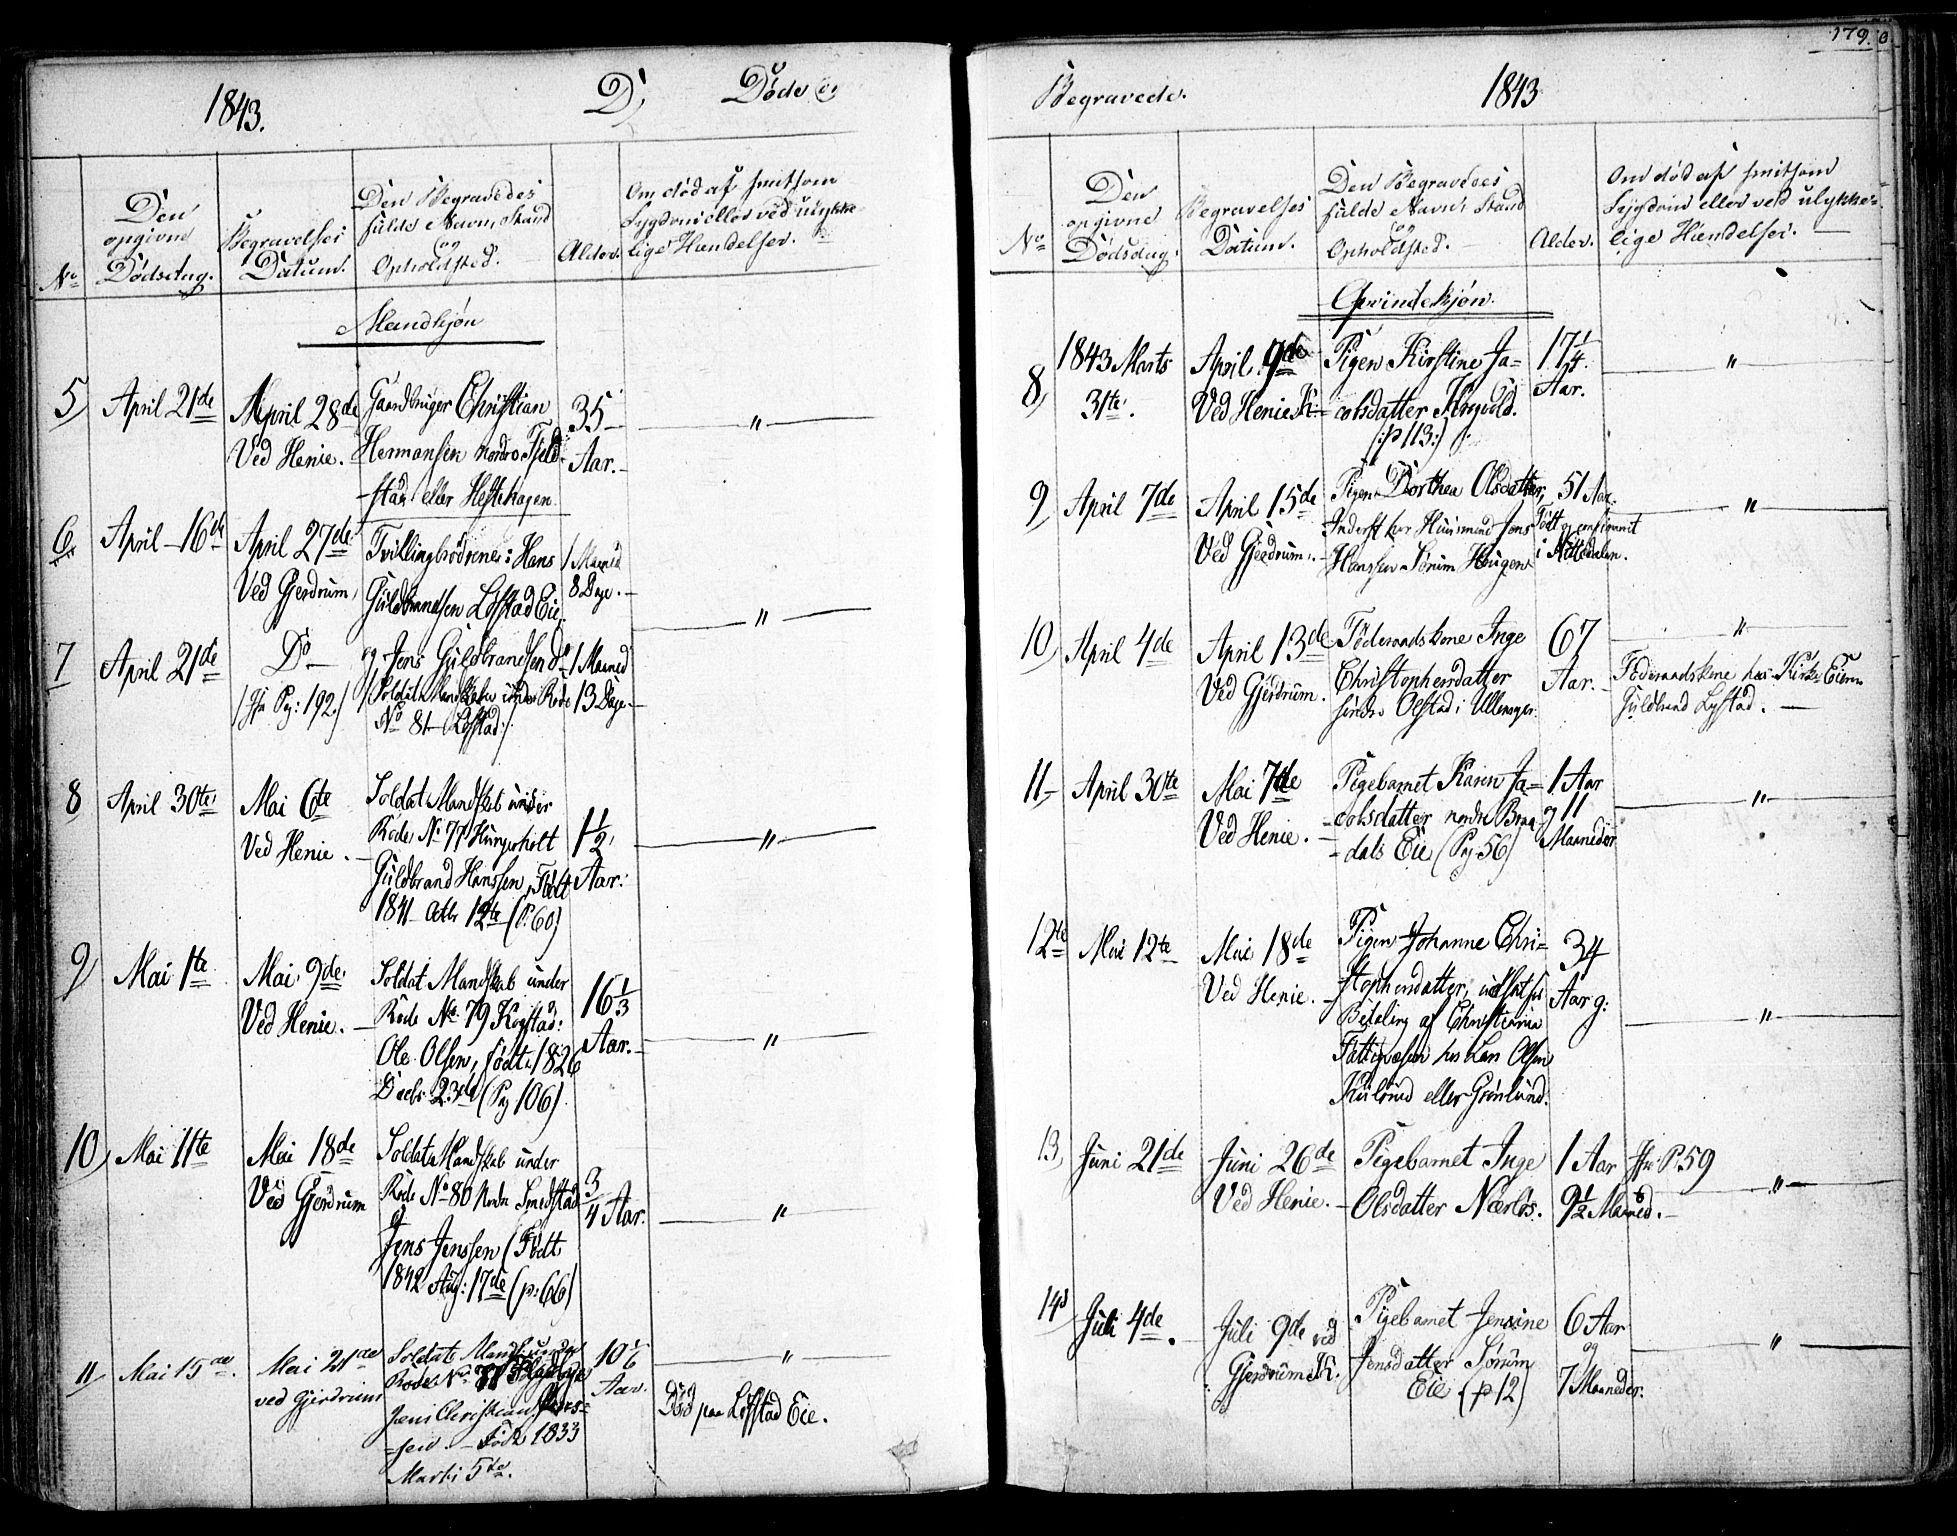 1843.
D,
Døde og
Den
opgivne
Dødsdag.
Begravelses
Datum.
Den Begravedes
fulde Navn, Stand
og
Opholdsted.
Alder.
Om død af smitsom
Sygdom eller ved ulykke-
lige Hændelser.
No
Mandkjøn
5, April 21de
April 28de
Ved Henie.
Gaardbruger Christian
Hermansen nordre Fjeld-
stad eller Hestehagen
35
Aar.
"
6, April 16de
April 27de
Ved Gjerdrum,
Tvillingbrødrene: Hans
Guldbrandsen Løfstad Eie
1 Maaned
8 Dage.
"
7 April 21de
Do
/Jfr Pag: 192./
og Jens Guldbrandsen do
/Soldat Mandskab under Rode
No 81 Løfstad/.
1 Maaned
13 Dage.
8 April 30te
Mai 6te
Ved Henie.
Soldat Mandskab under
Rode No 77 Hungerholt
Guldbrand Hanssen, Født
1841 Octb 12te (P. 60)
1 1/2
Aar.
"
9, Mai 1te
Mai 9de
Ved Henie.
Soldat Mandskab under
Rode No 79 Kogstad:
Ole Olsen, født 1826
Decbr 23de (Pag 106)
16 1/3
Aar.
"
10, Mai 11te
Mai 18de
Ved Gjerdrum
Soldat Mandskab under
Rode No 80 Nordre Smedstad
Jens Jenssen (Født
1842 Aug: 17de (p. 66)
3/4 Aar.
"
11, Mai 15de.
Mai 21de
ved Gjerdrum
Soldat Mandskab under
Rode No
Jens Christian
sen. Født 1833
Marts 5te.
10 1/6
Aar.
"
Død paa Løfstad Eie.
179.
Begravede.
1843
No
Den
opgivne
Dødsdag.
Begravelses
Datum.
Den Begravedes
fulde Navn, Stand
og
Opholdsted.
Alder.
Om død af smitsom
Sygdom eller ved ulykke-
lige Hændelser.
Qvindekjøn.
8, 1843 Marts
31te.
April 9de
Ved Henie K.
Pigen Kirstine Ja-
cobsdatter
(: p 113 :)
17 1/4.
Aar.
"
9, April 7de
April 15de
Ved Gjerdrum.
Pigen Dorthea Olsdatter,
Inderst hos Huusmand Jens
Hanssen Sørum Haugen
51 Aar.
Født og confirmeret
i Nittedalen.
"
10, April 4de
April 13de
Ved Gjerdrum.
Føderaadskone Inge
Christophersdatter
søndre Olstad i Ullensager.
67
Aar.
"
Føderaadskone hos Kirke Eieren
Guldbrand Lystad.
11 April 30te
Mai 7de
Ved Henie.
Pigebarnet Karen Ja-
cobsdatter nordre Braa-
dals Eie (Pag 56)
1 Aar
og 11
Maaneder
"
12te Mai 12te
Mai 18de
Ved Henie.
Pigen Johanne Chri-
stophersdatter, udsat for
Betaling af Christiania
Fattigvæsen hos Lars Olsen
Kulsrud eller Grønlund.
34
Aar g:
"
13, Juni 21de
Juni 26de
Ved Henie.
Pigebarnet Inge
Olsdatter Nærløs.
1 Aar
9 1/2 Maaned.
Jfr: P. 59
"
14, Juli 4de.
Juli 9de ved
Gjerdrums K.
Pigebarnet Jensine
Jensdatter Sørum
Eie (p 12)
6 Aar
og
7 Maaneder.
"